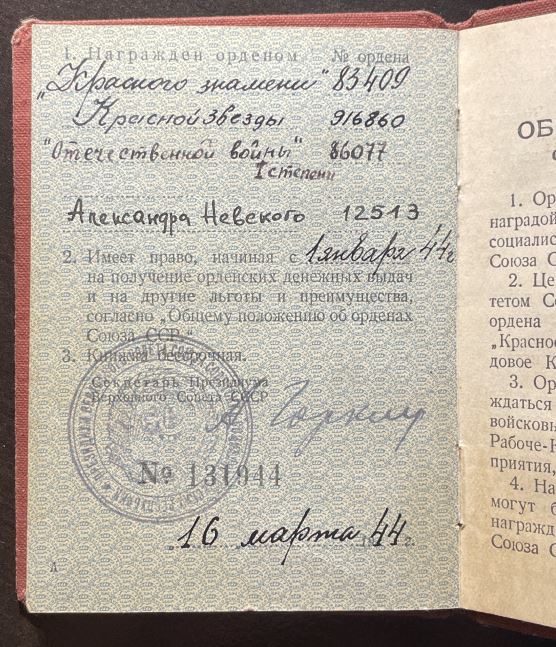 1. Награжден орденом № ордена
„Красного знамени" 83409
Красной Звезды 916860
"Отечественной войны" 86077
I степени
Александра Невского 12513
2. Имеет право, начиная с 1 января 44 г.
на получение орденских денежных выдач
и на другие льготы и преимущества,
согласно „Общему положению об орденах
Союза ССР."
3. Книжка бессрочная.
Секретарь Президиума
Верховного Совета СССР
А Горкин
№ 131944
„16 марта 44 г.
А
ОБ
1. Ор
наградой
социалис
Союза С
2. Це
тетом Со
ордена
„Красно
довое К
3. Ор
ждаться
войсковы
Рабоче-К
приятия,
4. На
могут б
награжд
Союза С